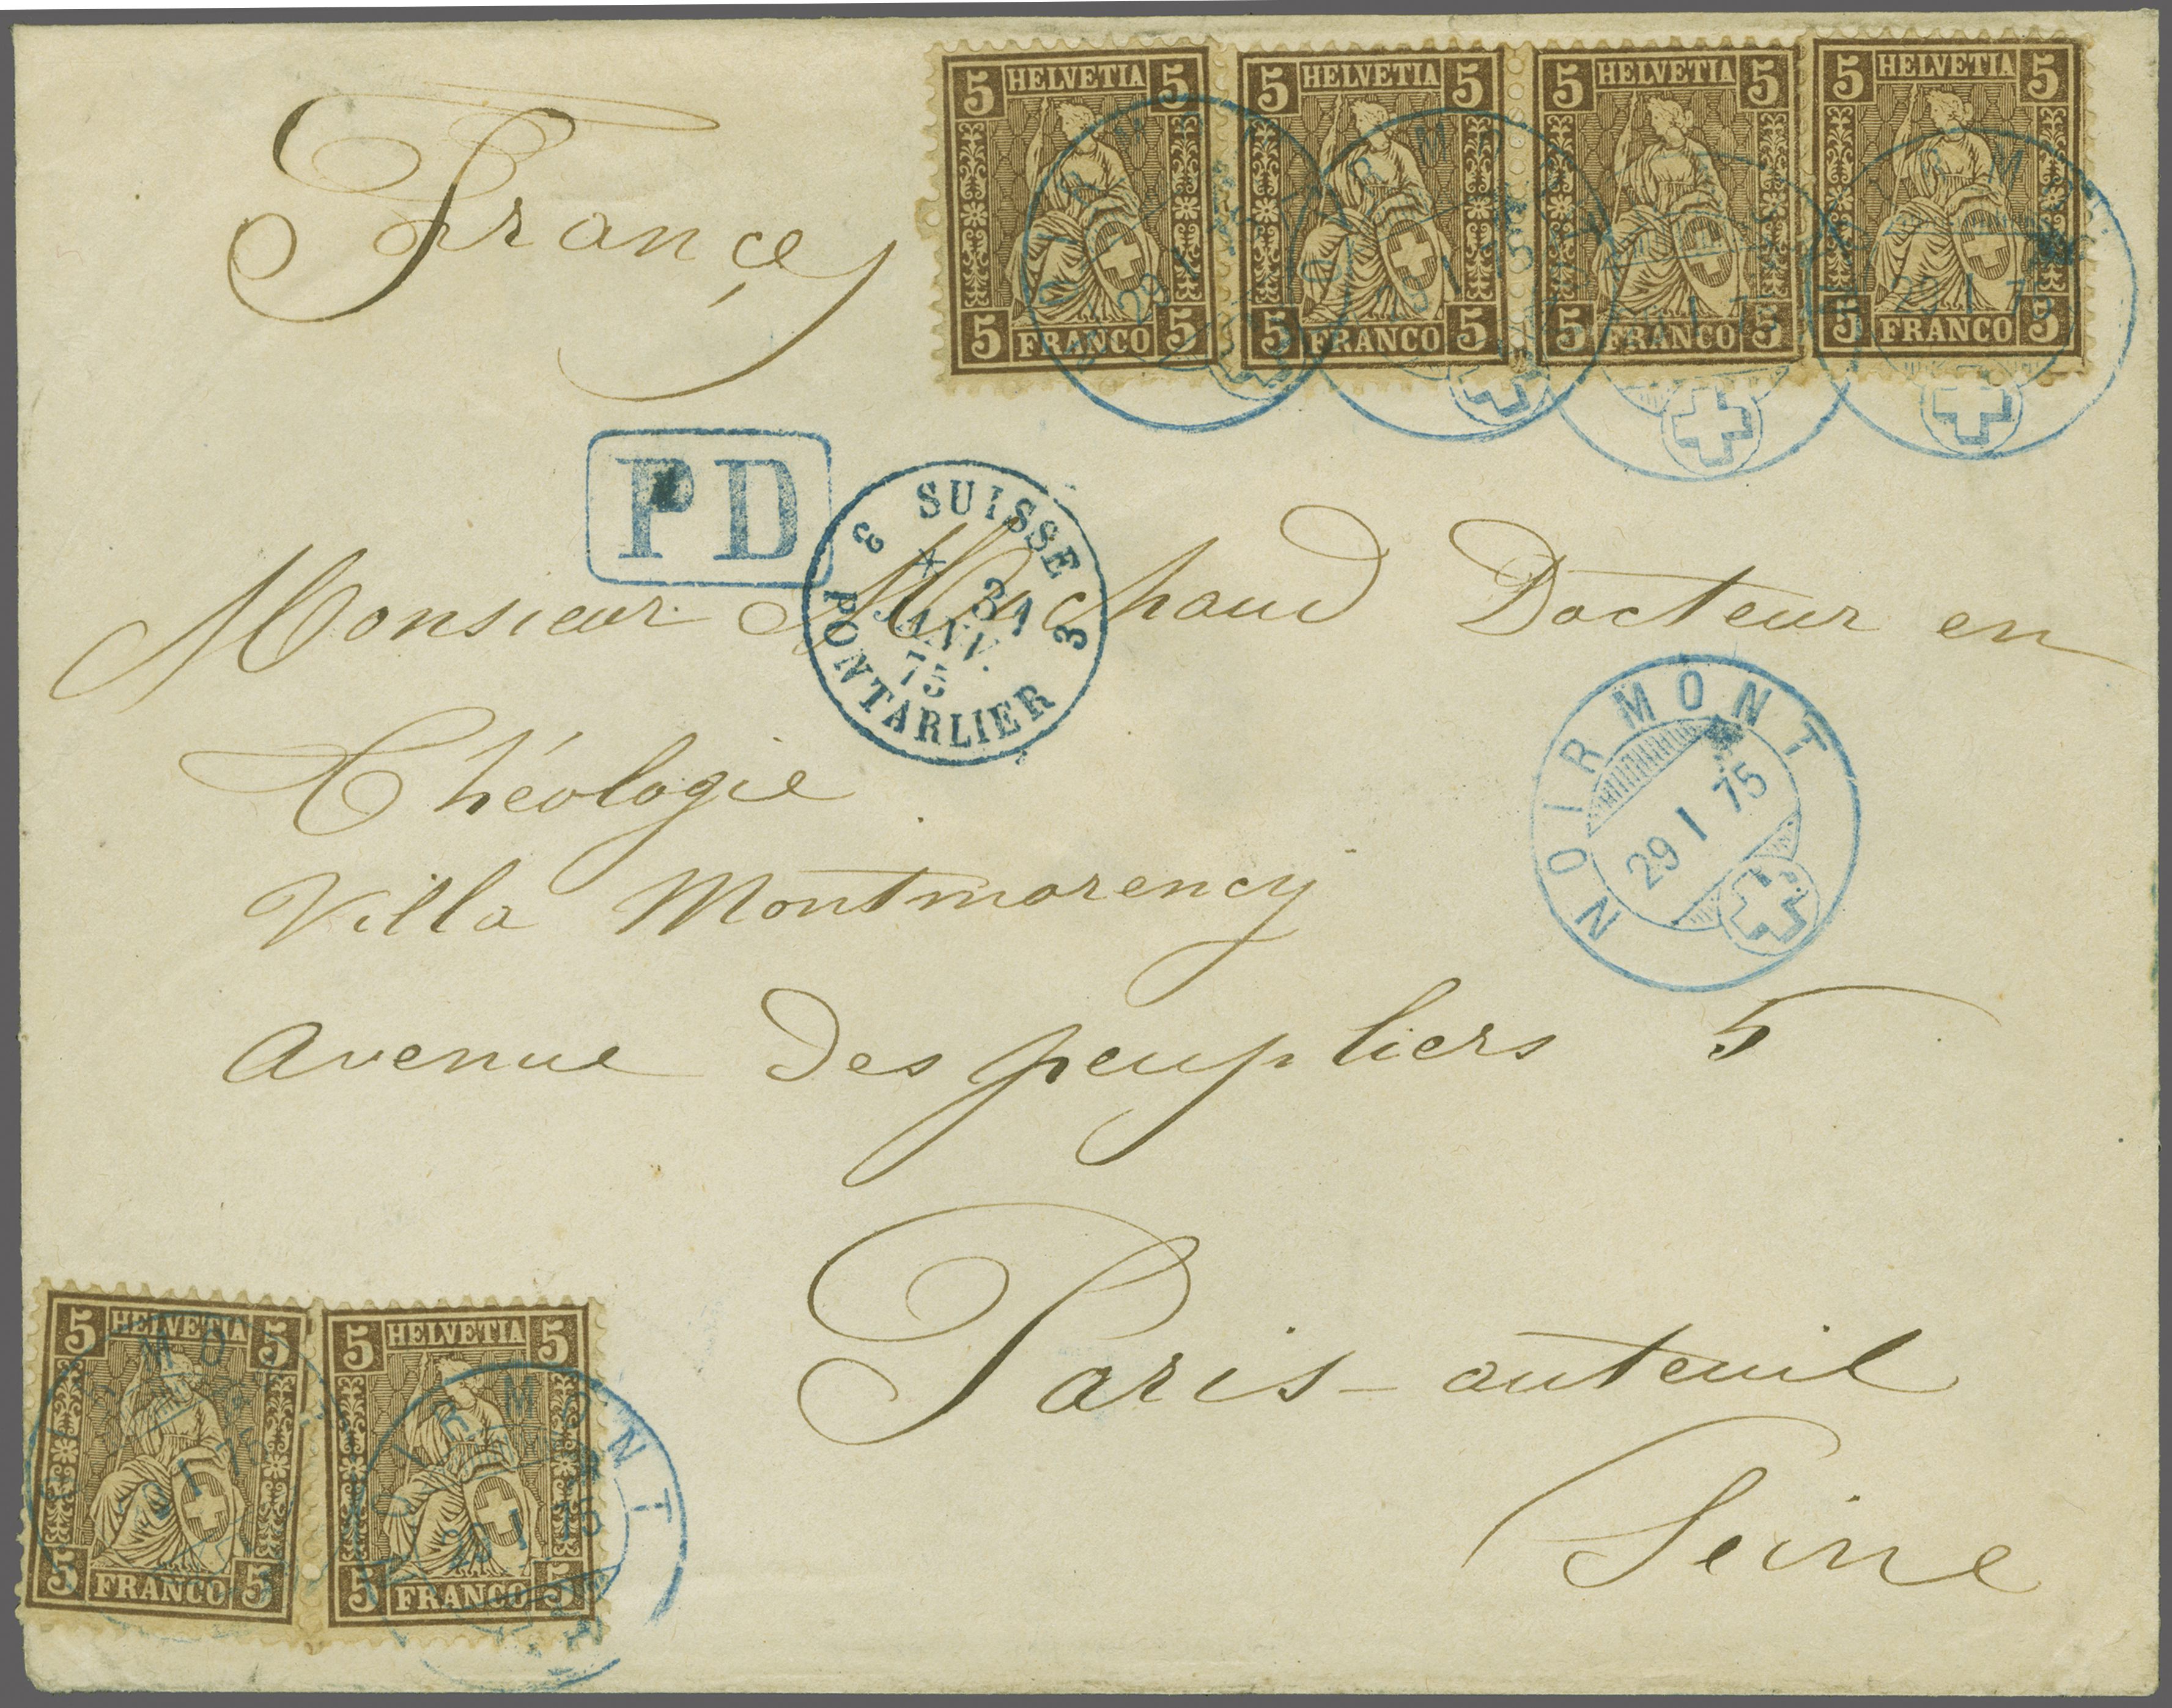 5 HELVETIA 5 5 HELVETIA 5 5 HELVETIA 5 5 HELVETIA 5
5 FRANCO 5 5 FRANCO 5 5 FRANCO 5 5 FRANCO 5
29 I 75
Françe
PD
SUISSE
3 3
31
JANV.
75
PONTARLIER
Monsieur Michaud Docteur en
Théologie
Villa Montmorency
NOIRMONT
29 I 75
Avenue des peupliers 5
Paris - auteuil
Seine
5 HELVETIA 5 5 HELVETIA 5
NOIRMONT
29 I 75
5 FRANCO 5 5 FRANCO 5